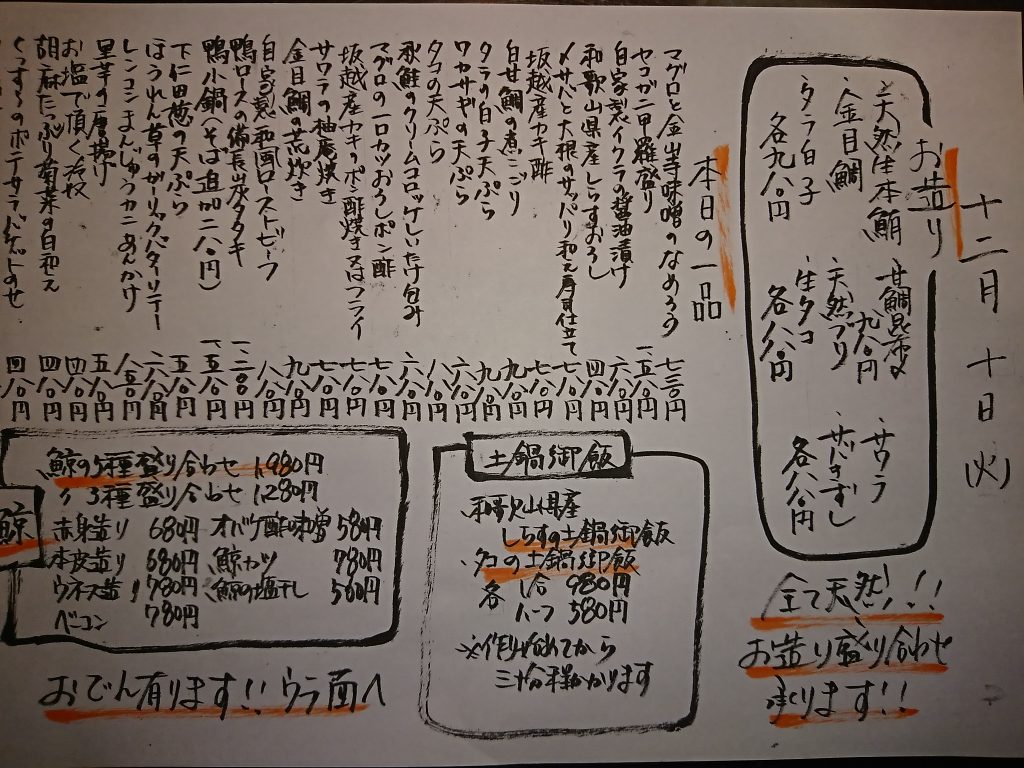 十二月十日(火)
お造り
天然生本鮪
金目鯛
タラ白子
各九八〇円
甘鯛昆布〆
九八〇円
天然ブリ
生タコ
各八八〇円
サワラ
サバのきずし
各八八〇円
全て天然!!!
お造り盛り合わせ
承ります!!
本日の一品
マグロと金山寺味噌のなめろう 七三〇円
セコガニ甲羅盛り 一、五八〇円
自家製イクラの醤油漬け 六八〇円
和歌山県産しらすおろし 四八〇円
〆サバと大根のサッパリ和え寿司仕立て 七八〇円
坂越産カキ酢 七八〇円
白甘鯛の煮こごり 九八〇円
タラの白子天ぷら 九八〇円
ワカサギの天ぷら 六八〇円
タコの天ぷら 八八〇円
秋鮭のクリームコロッケしいたけ包み 六八〇円
マグロの一口カツおろしポン酢 七八〇円
坂越産カキのポン酢焼き又はフライ 七八〇円
サワラの柚庵焼き 七八〇円
金目鯛の荒炊き 九八〇円
自家製和風ローストビーフ 八八〇円
鴨ロースの備長炭タタキ 一、二〇〇円
鴨小鍋(そば追加二八〇円) 一、五八〇円
下仁田葱の天ぷら 五八〇円
ほうれん草のガーリックバターソテー 六八〇円
レンコンまんじゅうカニあんかけ 八五〇円
里芋の唐揚げ 五八〇円
お塩で頂く若板 四八〇円
胡麻たっぷり菊菜の白和え 四八〇円
ポテサラバゲットのせ 四八〇円
土鍋御飯
・和歌山県産
しらすの土鍋御飯
・タコの土鍋御飯
各 1合 980円
ハーフ 580円
※作り始めてから
三十分程かかります
鯨
鯨の5種盛り合わせ 1,980円
〃 3種盛り合わせ 1,280円
赤身造り 680円 オバケ酢味噌 580円
本皮造り 680円 鯨カツ 780円
ウネス造り 780円 鯨の塩干し 560円
ベーコン 780円
おでん有ります!! ウラ面へ